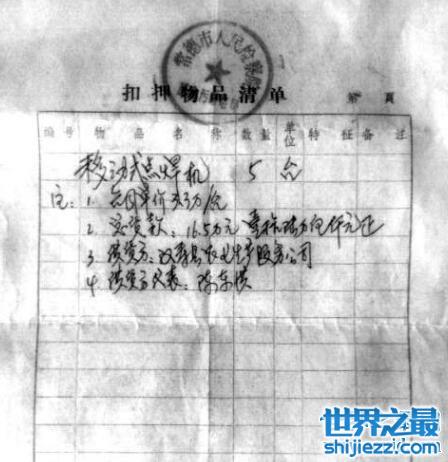 常德市人民检察院
扣押物品清单 第 页
编号 物品名称 数量 单位 特征 备注
移动式点焊机 5 台
注: 1. 合同单价3.3万/台
2. 交货款: 16.5万元
3 供货方: 汉寿县农电生产服务公司
4. 供货方代表:
世界之最
shijiezz.com